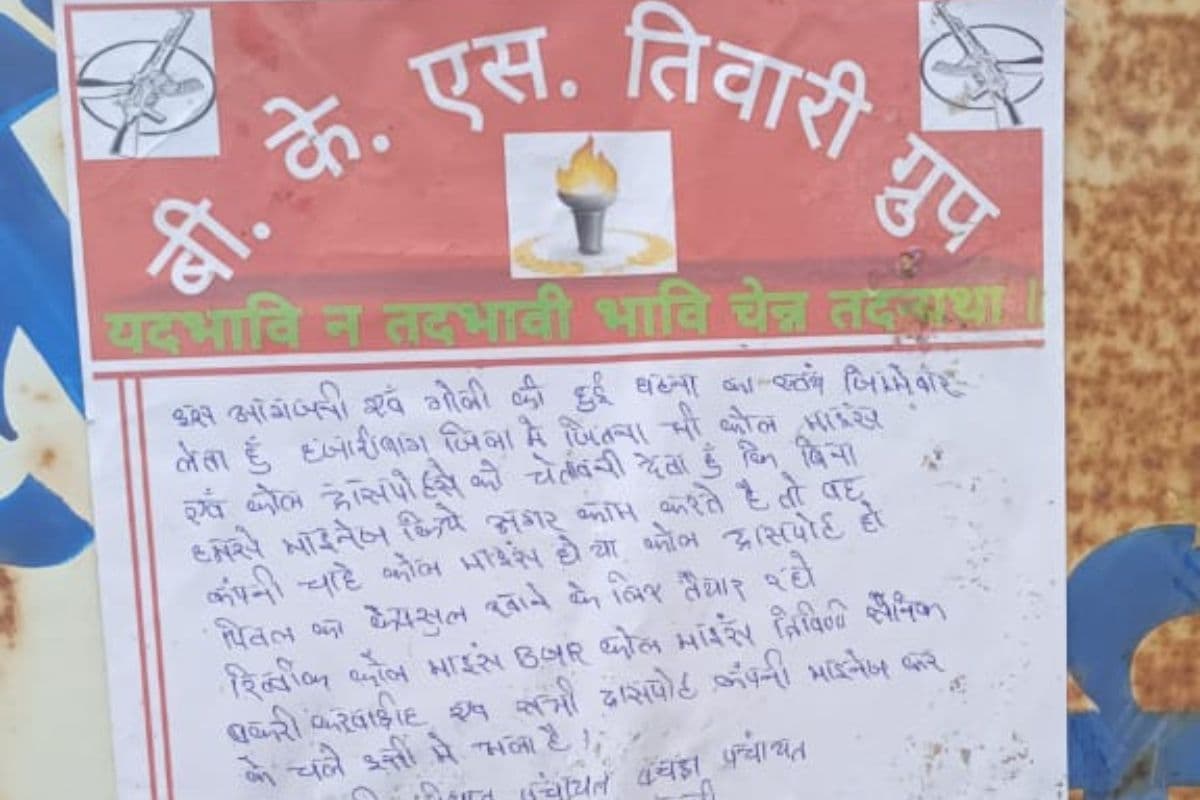 बी. के. एस. तिवारी ग्रुप
यदभावि न तदभावी भावि चेन्न तदन्यथा ।
इस आगजनी एवं गोली की हुई घटना का स्वंय जिम्मेवार
लेता हुँ हजारीबाग जिला मे जितना भी कोल माइंस
एवं कोल ट्रांसपोर्टरो को चेतावनी देता हुँ कि बिना
हमसे माइनेज किये अगर काम करते है तो वह
कंपनी चाहे कोल माइंस हो या कोल ट्रांसपोर्ट हो
पितल का कैप्सुल खाने के लिए तैयार रहो
रित्वीक कोल माइंस BGR कोल माइंस त्रिवेणी सैनिक
एवं सभी ट्रांसपोर्ट कंपनी माइनेज कर
के चले इसी मे भला है।
पंचायत पचड़ा पंचायत